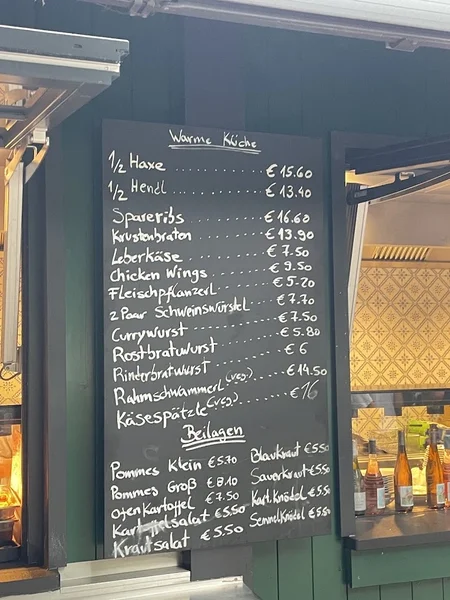 Warme Küche
1/2 Haxe ............ € 15.60
1/2 Hendl ............ € 13.40
Spareribs ............ € 16.60
Krustenbraten ........ € 13.90
Leberkäse ............ € 7.50
Chicken Wings ........ € 9.50
Fleischpflanzerl ........ € 5.20
2 Paar Schweinswürstel .... € 7.70
Currywurst ............ € 7.50
Rostbratwurst ........ € 5.80
Rinderbratwurst ........ € 6
Rahmschwammerl (veg.) .... € 14.50
Käsespätzle (veg.) ........ € 16
Beilagen
Pommes Klein € 5.70
Pommes Groß € 8.10
Ofenkartoffel € 7.50
Kartoffelsalat € 5.50
Krautsalat € 5.50
Blaukraut € 5.50
Sauerkraut € 5.50
Kart.Knödel € 5.50
Semmelknödel € 5.50